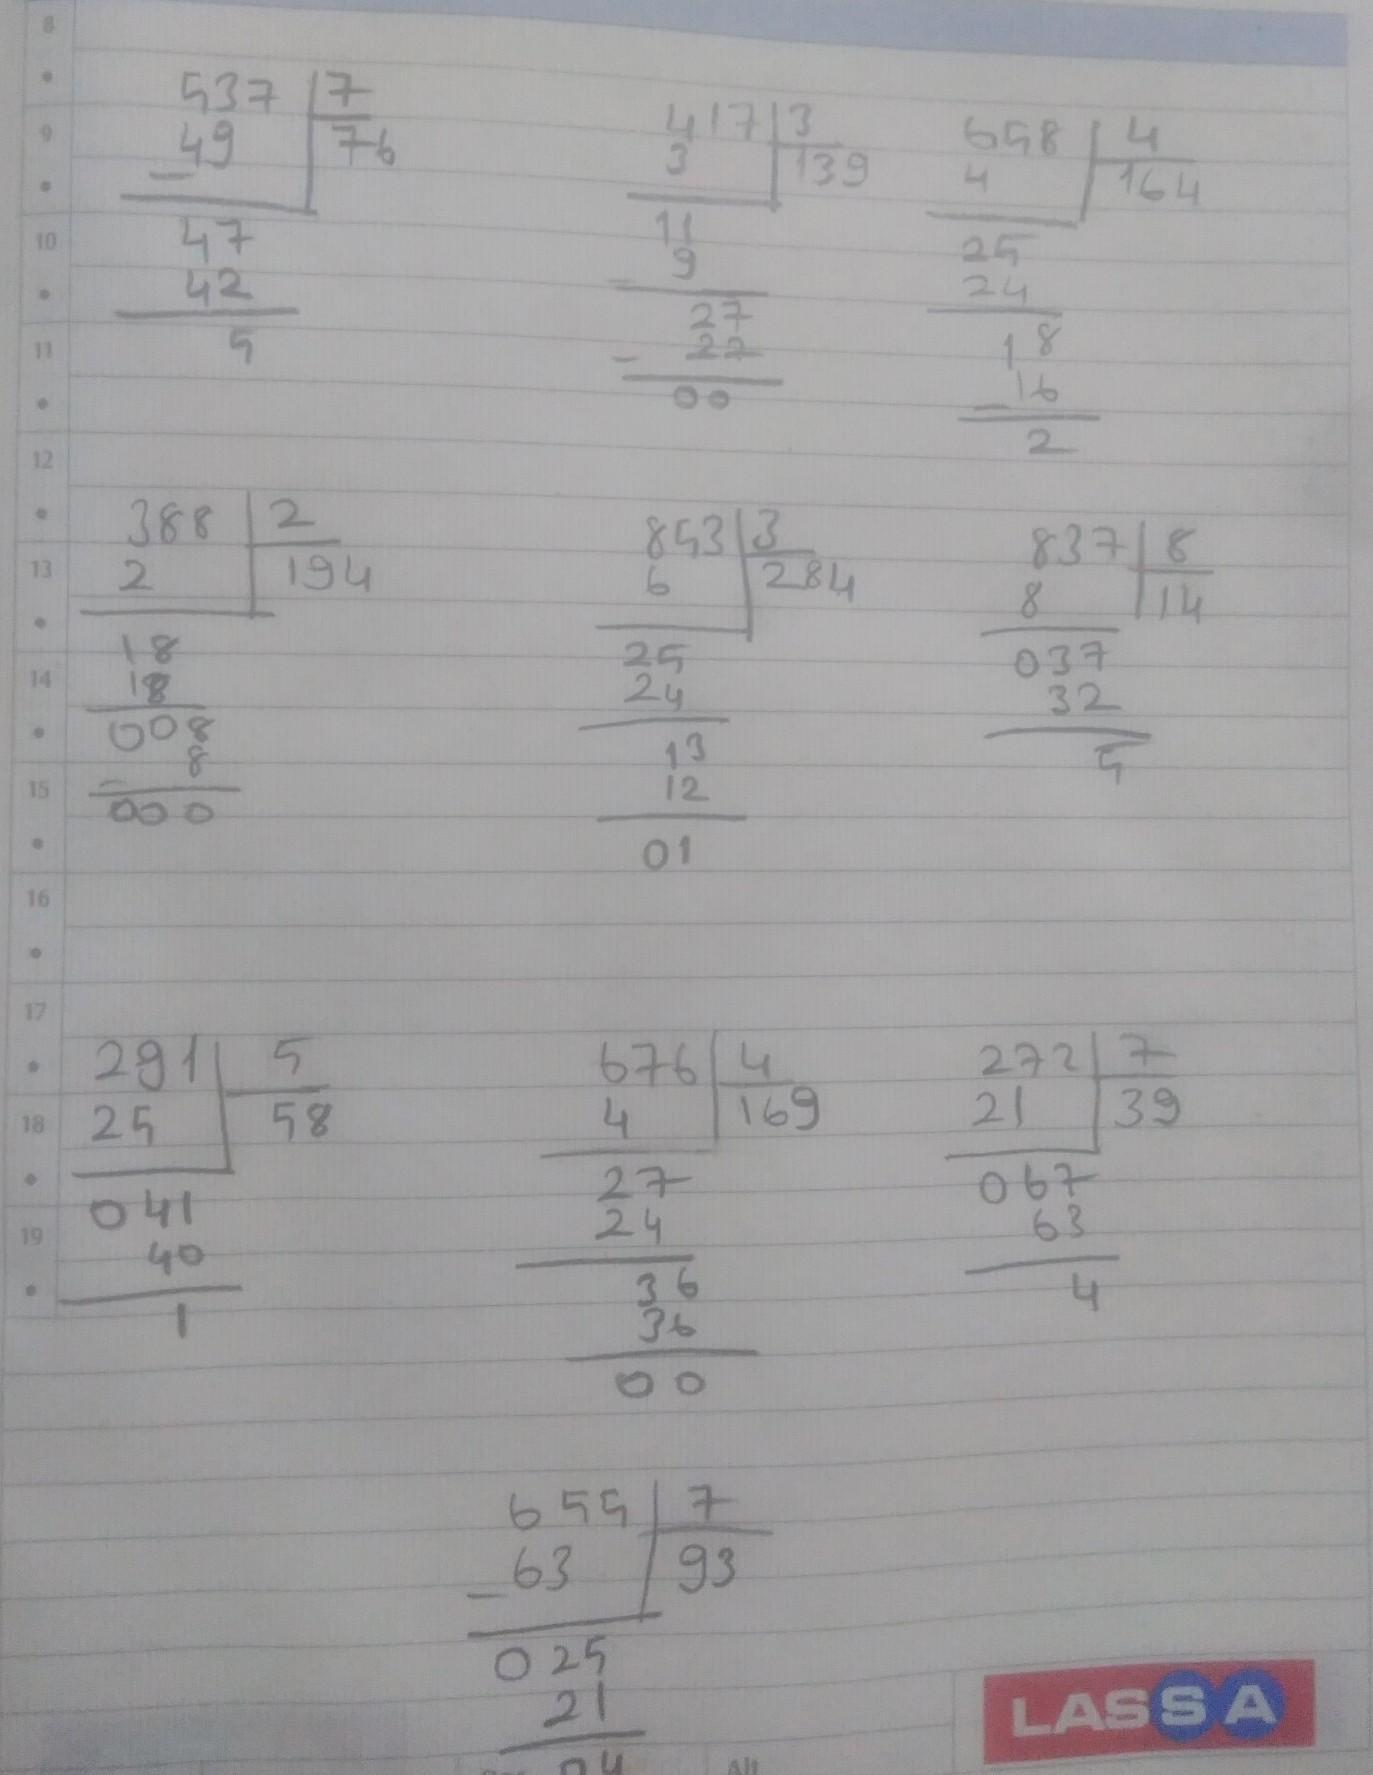 8
9
10
11
12
13
14
15
16
17
18
19
537 7
49 76
-
47
42
5
417 3
3 139
11
9
-
27
- 27
00
658 4
4 164
25
24
18
- 16
2
388 2
2 194
18
18
008
- 8
000
853 3
6 284
25
24
13
12
01
837 8
8 14
037
32
5
291 5
25 58
041
40
1
676 4
4 169
27
24
36
36
00
272 7
21 39
067
63
4
655 7
- 63 93
025
21
04
LASSA